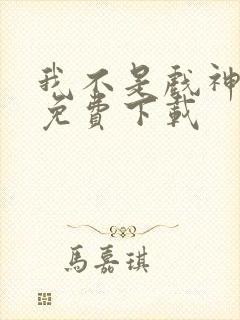 我不是戲神
免費下載
馬嘉琪